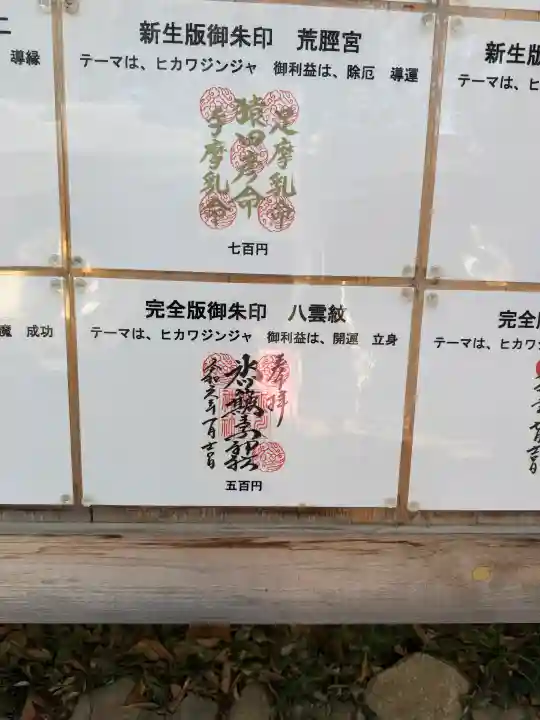 導縁
新生版御朱印　荒脛宮
テーマは、ヒカワジンジャ　御利益は、除厄　導運
足摩乳命
猿田彦命
手摩乳命
七百円
新生版
テーマは、
魔　成功
完全版御朱印　八雲紋
テーマは、ヒカワジンジャ　御利益は、開運　立身
奉拝
令和六年
五百円
完全版
テーマは、ヒ